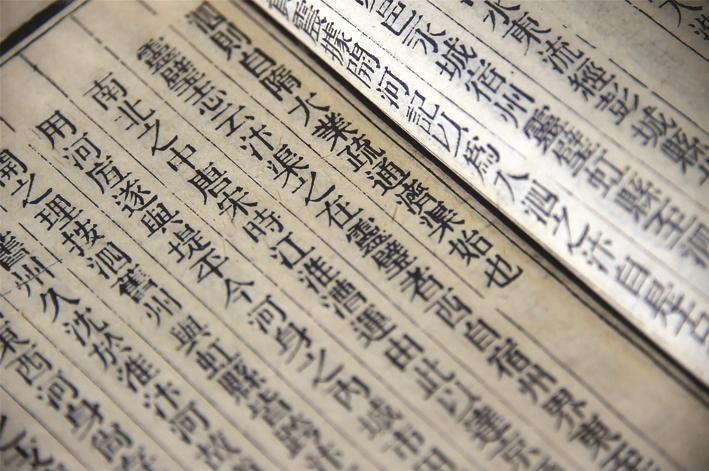 水東流經彭城縣
邑永城宿州靈壁虹縣至泗
靈壁據開河記以為入泗之汴自是古
泗則自隋大業疏通濟渠始也
靈壁志云汴渠之在靈壁者西自宿州界東
南北之中唐宋時江淮漕運由此以達京
用河底遂與堤平今河身之內城市
開之理按泗舊州與虹縣皆跨汴
舊州久沈於淮汴河故
東西河身尚